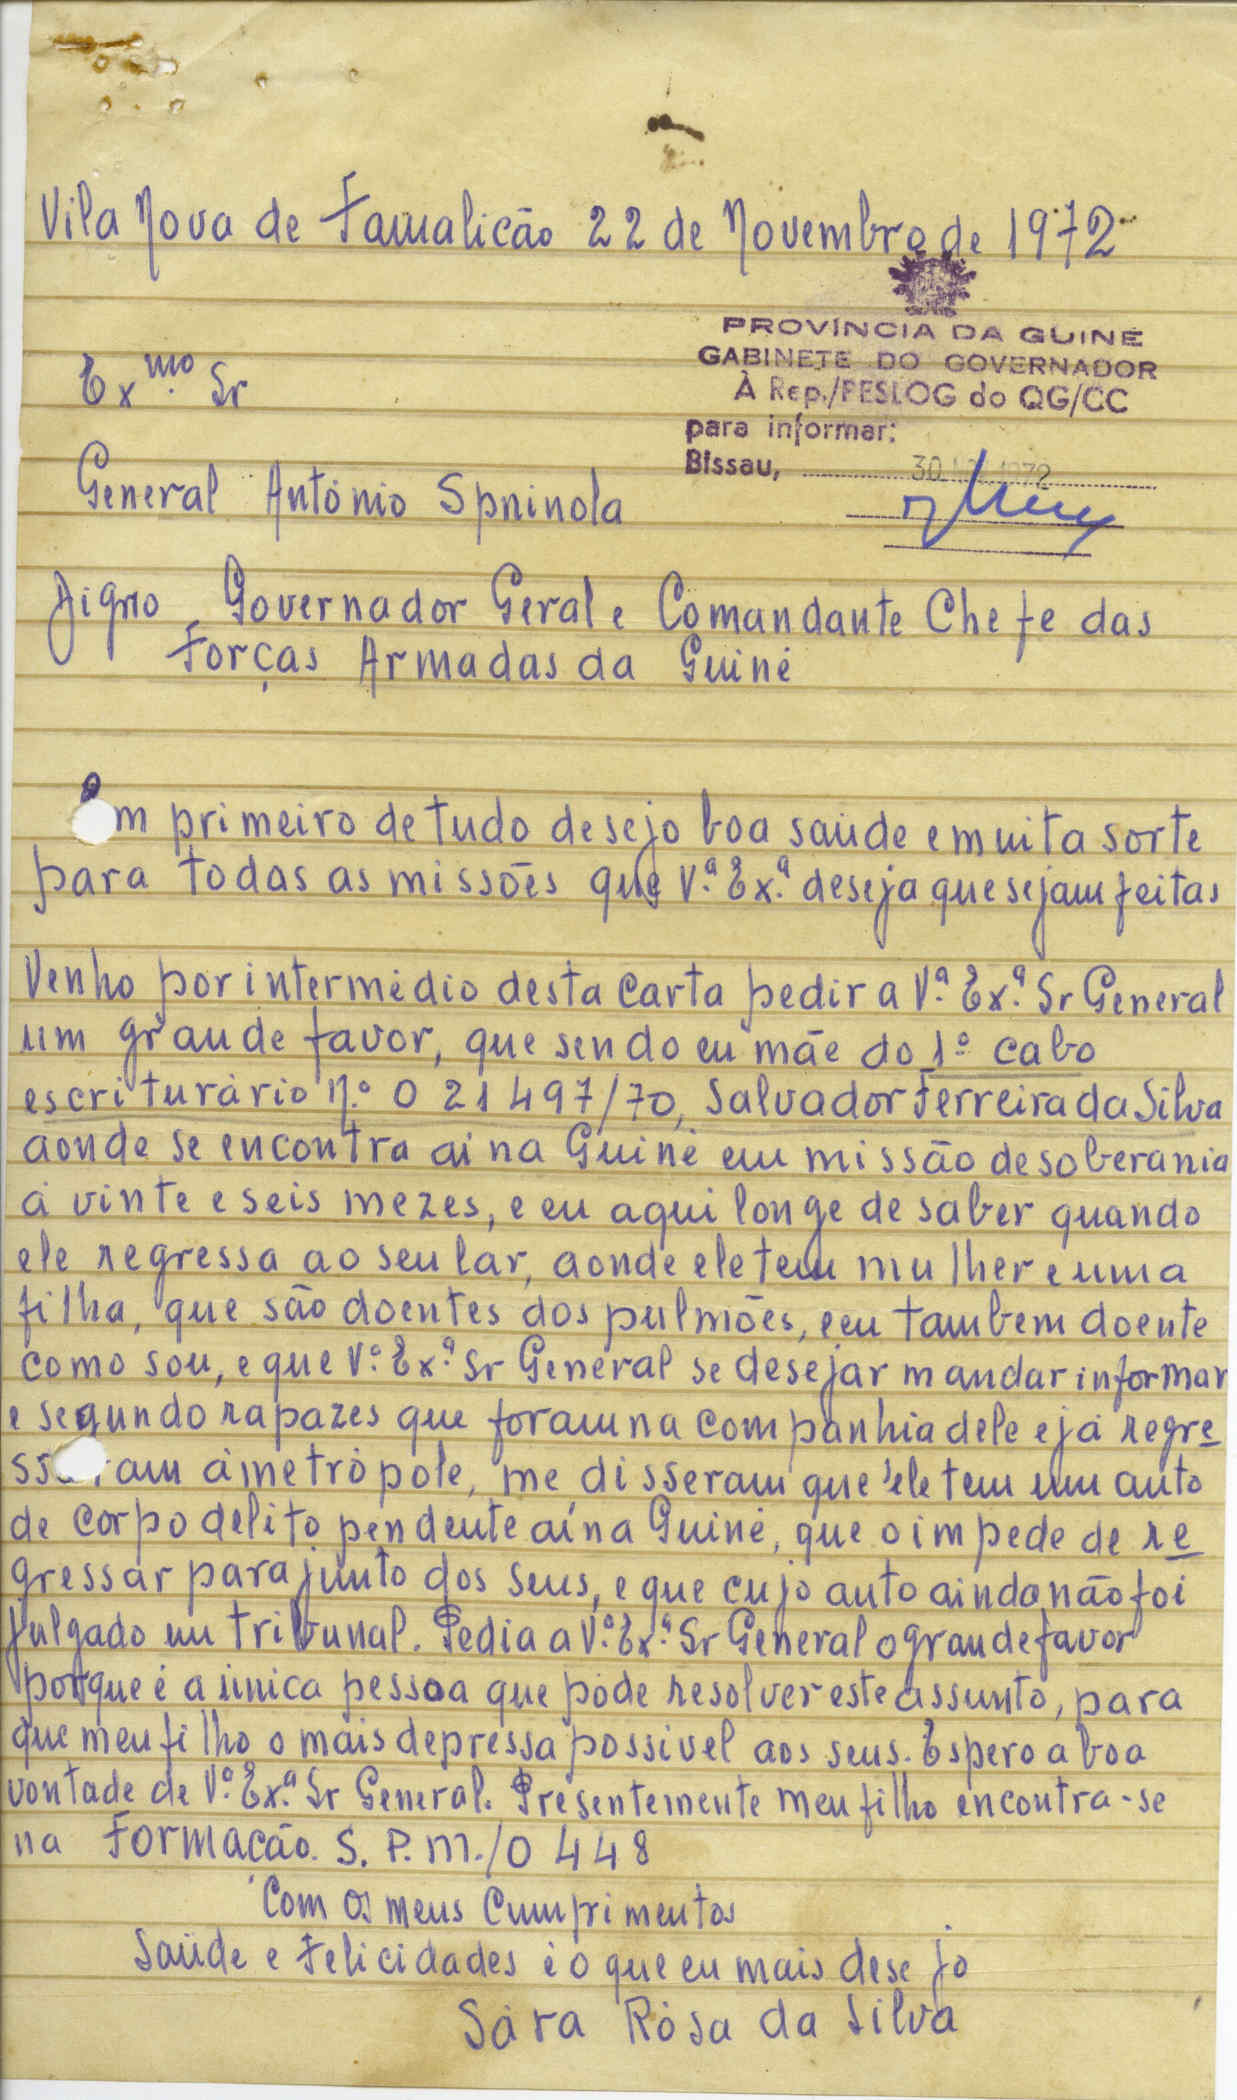 Vila Nova de Famalicão 22 de Novembro de 1972
PROVÍNCIA DA GUINÉ
GABINETE DO GOVERNADOR
À Rep./PESLOG do QG/CC
para informar:
Bissau, 30 1972
Exmo. Sr
General António Spninola
Digno Governador Geral e Comandante Chefe das
Forças Armadas da Guiné
Em primeiro de tudo desejo boa saúde e muita sorte
para todas as missões que V.ª Ex.ª deseja que sejam feitas
Venho por intermédio desta carta pedir a V.ª Ex.ª Sr General
um grande favor, que sendo eu mãe do 1º cabo
escriturário N.º 021497/70, Salvador Ferreira da Silva
aonde se encontra aí na Guiné em missão de soberania
á vinte e seis mezes, e eu aqui longe de saber quando
ele regressa ao seu lar, aonde ele tem mulher e uma
filha, que são doentes dos pulmões, e eu tambem doente
como sou, e que V.ª Ex.ª Sr General se desejar mandar informar
e segundo rapazes que foram na companhia dele e já regre-
ssaram á metrópole, me disseram que ele tem um auto
de corpo delito pendente aí na Guiné, que o impede de re-
gressar para junto dos seus, e que cujo auto ainda não foi
julgado em tribunal. Pedia a V.ª Ex.ª Sr General o grande favor
porque é a única pessoa que póde resolver este assunto, para
que meu filho o mais depressa possível aos seus. Espero a boa
vontade de V.ª Ex.ª Sr General. Presentemente meu filho encontra-se
na Formação. S. P. M./0448
Com os meus Cumprimentos
Saúde e Felicidades é o que eu mais desejo
Sára Rósa da Silva